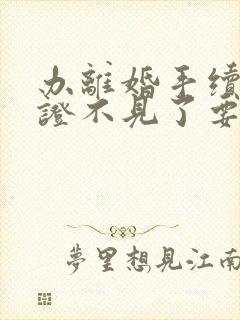 办離婚手续
證不見了要
夢里想見江南